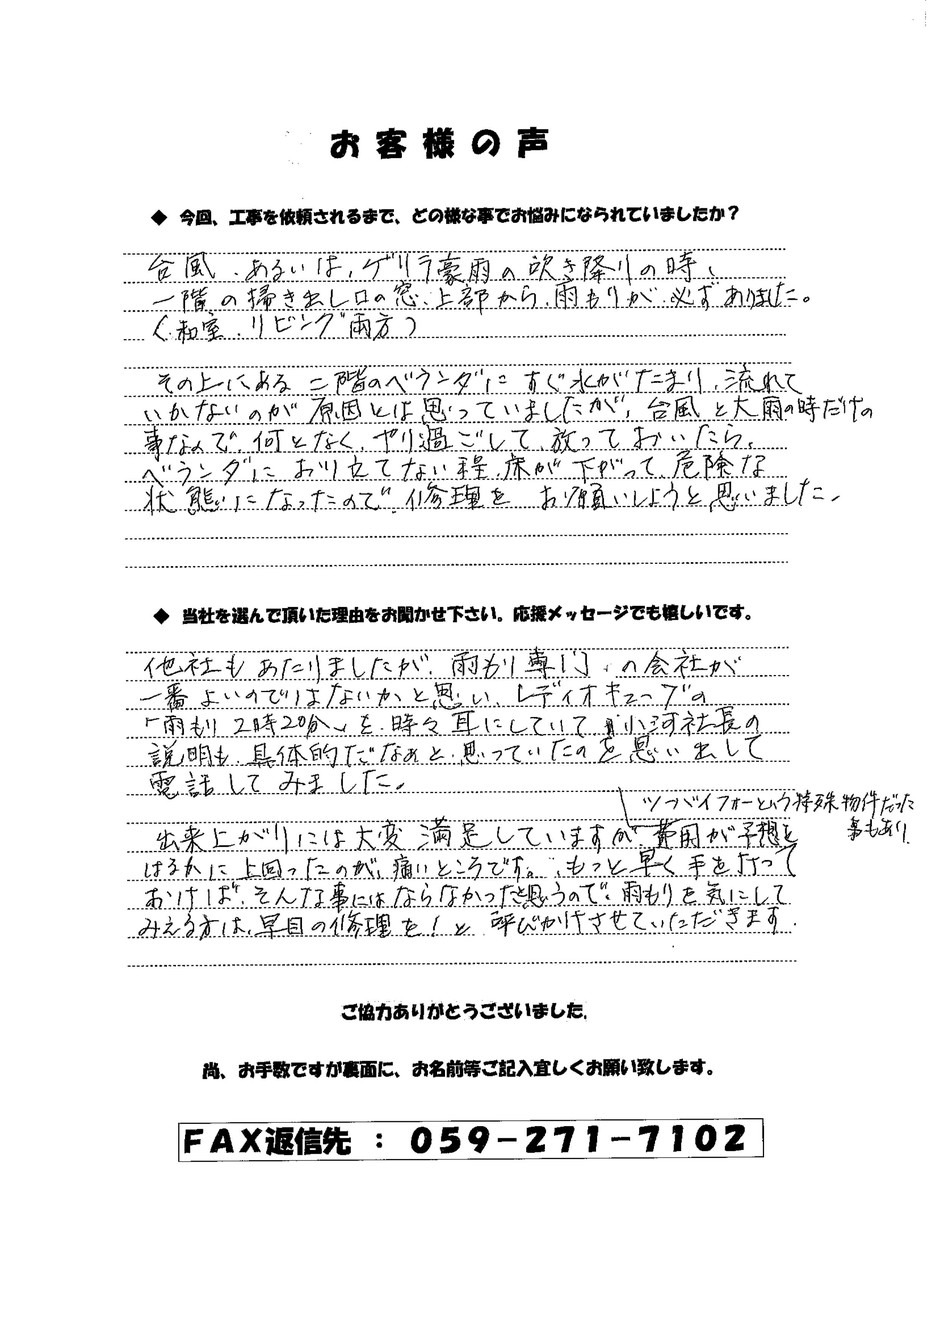 お客様の声
◆ 今回、工事を依頼されるまで、どの様な事でお悩みになられていましたか？
台風、あるいは、ゲリラ豪雨の吹き降りの時、
一階の掃き出し口の窓、上部から、雨もりが必ずありました。
（和室、リビング両方）
その上にある二階のベランダにすぐ水がたまり、流れて
いかないのが原因とは思っていましたが、台風と大雨の時だけの
事なんで、何となく、やり過ごして、放っておいたら、
ベランダにおり立てない程、床が下がって、危険な
状態になったので、修理をお願いしようと思いました。
◆ 当社を選んで頂いた理由をお聞かせ下さい。応援メッセージでも嬉しいです。
他社もあたりましたが、雨もり専門、の会社が
一番よいのではないかと思い、レディオキューブの
「雨もり2時20分」を、時々耳にしていて、小河社長の
説明も、具体的だなぁと、思っていたのを思い出して
電話してみました。
ツーバイフォーという特殊物件だった
事もあり
出来上がりには大変満足していますが、費用が予想を
はるかに上回ったのが、痛いところです。もっと早く手を打って
おけば、そんな事にはならなかったと思うので、雨もりを気にして
みえる方は、早目の修理を！と呼びかけさせていただきます。
ご協力ありがとうございました。
尚、お手数ですが裏面に、お名前等ご記入宜しくお願い致します。
FAX返信先 ： 059-271-7102